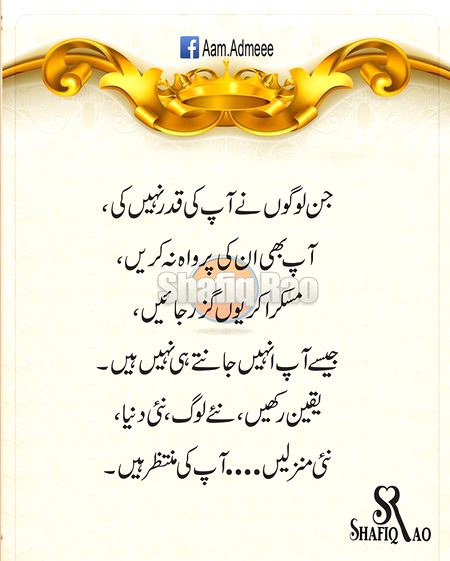 Aam.Admeee
جن لوگوں نے آپ کی قدر نہیں کی،
آپ بھی ان کی پرواہ نہ کریں،
Shafiq Rao
مسکرا کر یوں گزر جائیں،
جیسے آپ انہیں جانتے ہی نہیں ہیں۔
یقین رکھیں، نئے لوگ، نئی دنیا،
نئی منزلیں.... آپ کی منتظر ہیں۔
SR
SHAFIQ RAO